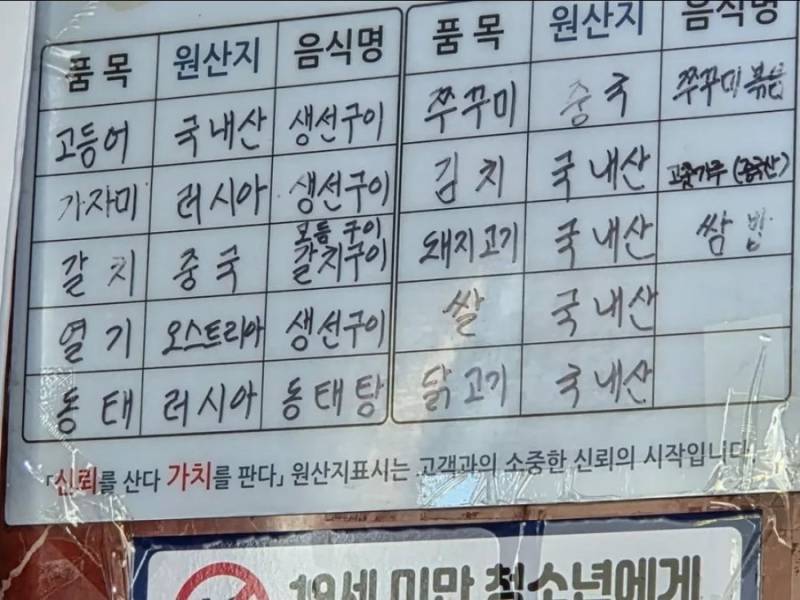 품목 원산지 음식명
고등어 국내산 생선구이
가자미 러시아 생선구이
갈치 중국 모듬구이 갈치구이
열기 오스트리아 생선구이
동태 러시아 동태탕
품목 원산지 음식명
쭈꾸미 중국 쭈꾸미볶음
김치 국내산 고춧가루 (중국산)
돼지고기 국내산 쌈밥
쌀 국내산
닭고기 국내산
「신뢰를 산다 가치를 판다」 원산지표시는 고객과의 소중한 신뢰의 시작입니다.
19세 미만 청소년에게